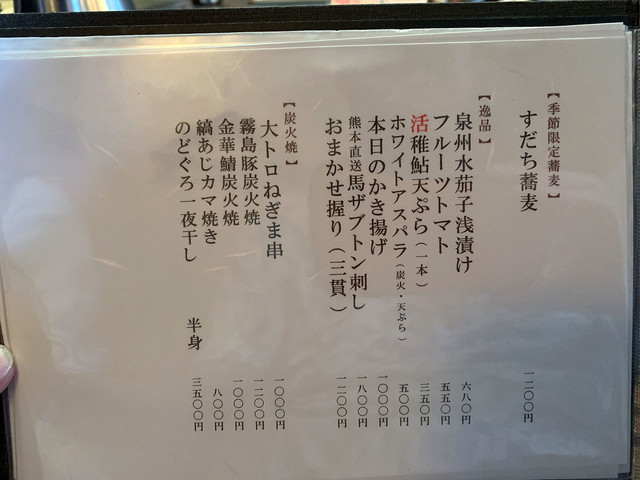 【季節限定蕎麦】
すだち蕎麦 一二〇〇円
【逸品】
泉州水茄子浅漬け 六八〇円
フルーツトマト 五五〇円
活稚鮎天ぷら（一本） 三五〇円
ホワイトアスパラ（炭火・天ぷら） 五〇〇円
本日のかき揚げ 一〇〇〇円
熊本直送馬ザブトン刺し 一八〇〇円
おまかせ握り（三貫） 一二〇〇円
【炭火焼】
大トロねぎま串 一〇〇〇円
霧島豚炭火焼 一二〇〇円
金華鯖炭火焼 一〇〇〇円
縞あじカマ焼き 八〇〇円
のどぐろ一夜干し 半身 三五〇〇円